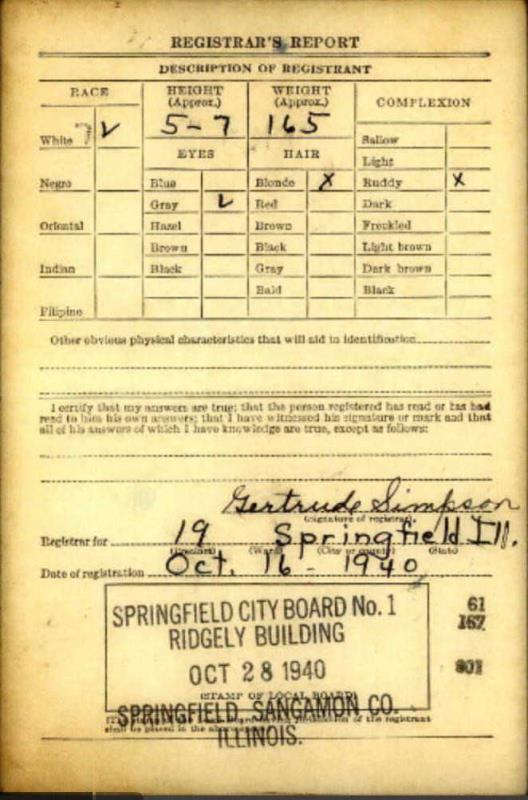 REGISTRAR'S REPORT
DESCRIPTION OF REGISTRANT
RACE
HEIGHT
(Approx.)
WEIGHT
(Approx.)
COMPLEXION
5-7
165
White
EYES
HAIR
Sallow
Light
Negro
Blue
Blonde X
Ruddy X
Gray
Red
Dark
Oriental
Hazel
Brown
Freckled
Brown
Black
Light brown
Indian
Black
Gray
Dark brown
Bald
Black
Filipino
Other obvious physical characteristics that will aid in identification
I certify that my answers are true; that the person registered has read or has had
read to him his own answers; that I have witnessed his signature or mark and that
all of his answers of which I have knowledge are true, except as follows:
Gertrude Simpson
(Signature of registrar)
Registrar for 19 Springfield Ill.
(Precinct) (Ward) (City or county) (State)
Date of registration Oct. 16 - 1940
SPRINGFIELD CITY BOARD No. 1
RIDGELY BUILDING
OCT 28 1940
61
167
801
(STAMP OF LOCAL BOARD)
SPRINGFIELD, SANGAMON CO.
of the registrant
shall be placed in the
ILLINOIS.